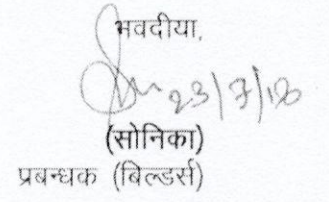 भवदीया,
23/7/18
(सोनिका)
प्रबन्धक (बिल्डर्स)